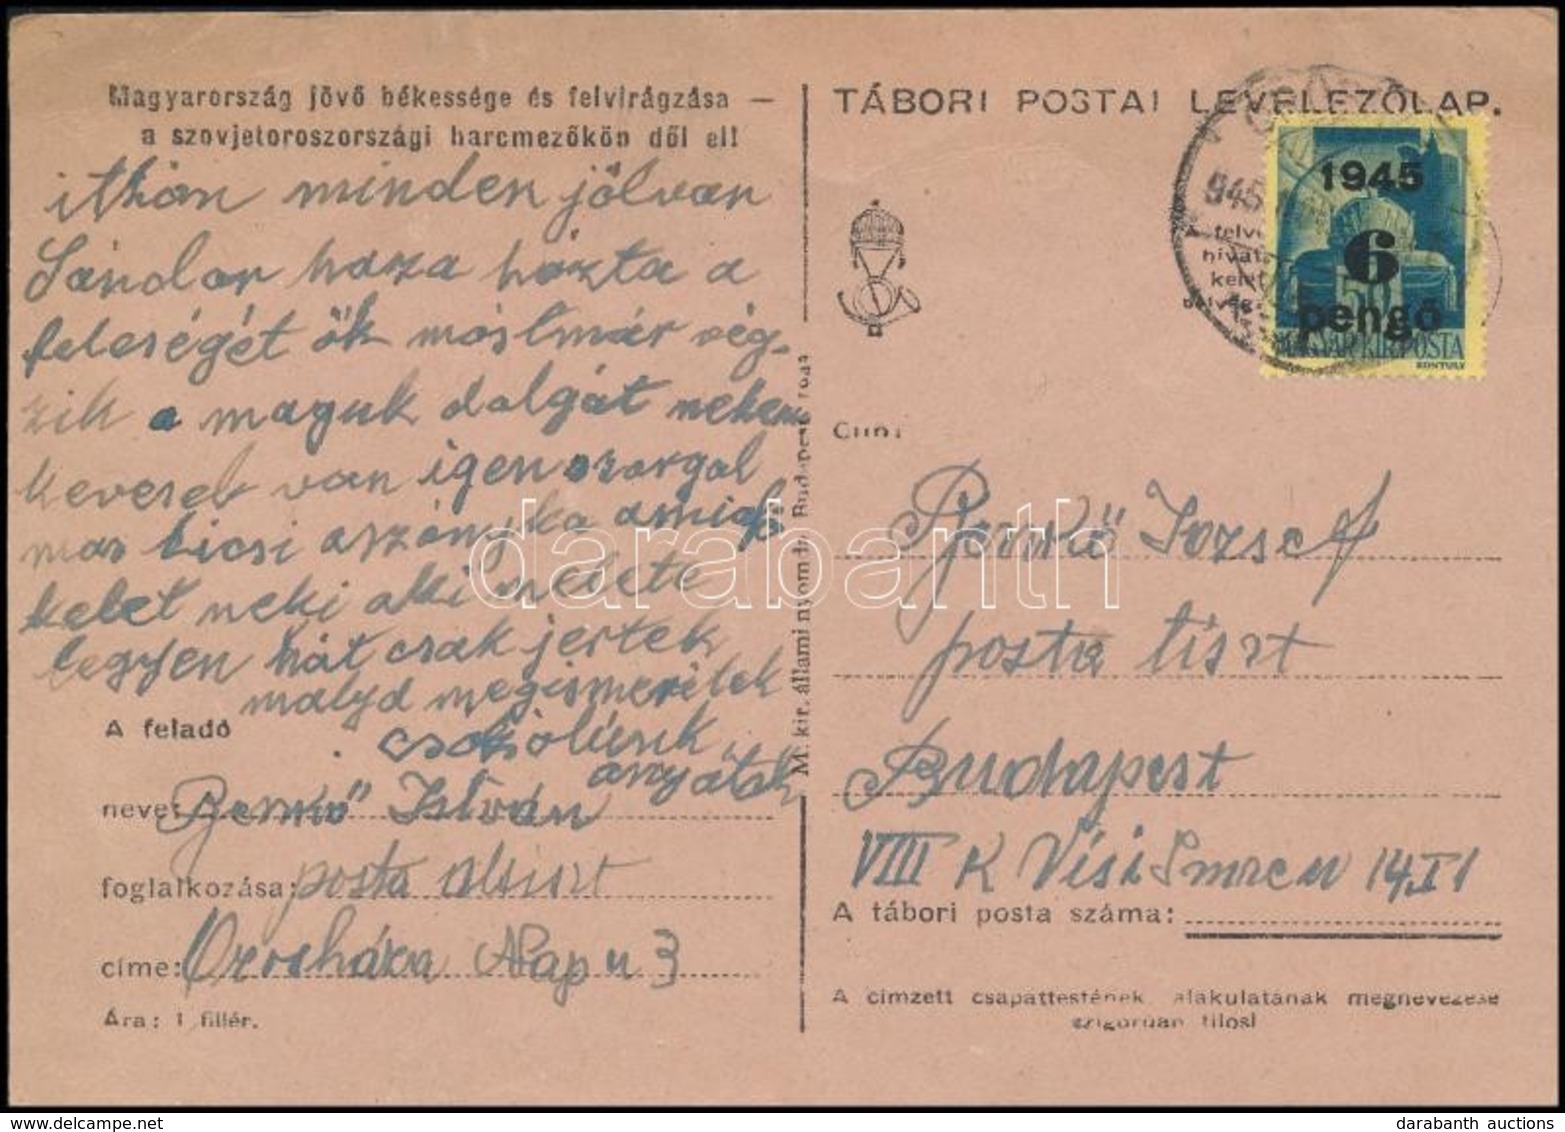 Magyarország jövő békessége és felvirágzása —
a szovjetoroszországi harcmezőkön dől el!
itthon minden jólvan
Sándor haza hozta a
feleségét ők mostmár vég-
zik a maguk dolgát nekem
keveseb van igen szorgal
mas kicsi aszonyka amiaf
kelet neki aki melete
legyen hát csak jertek
malyd megismeritek
csokolunk
anyátok
A feladó
neve: Benkő István
foglalkozása: posta altiszt
címe: Orosháza Nap u 3
Ára: 1 fillér.
M. kir. állami nyomda, Budapest
TÁBORI POSTAI LEVELEZŐLAP.
945
1945
6
pengő
50
MAGYAR KIR. POSTA
KONTULY
Cím:
Benkő Jozsef
posta tiszt
Budapest
VIII K Visi Imreu 14, I 1
A tábori posta száma:
A címzett csapattestének, alakulatának megnevezése
szigorúan tilos!
darabanth
darabanth auctions